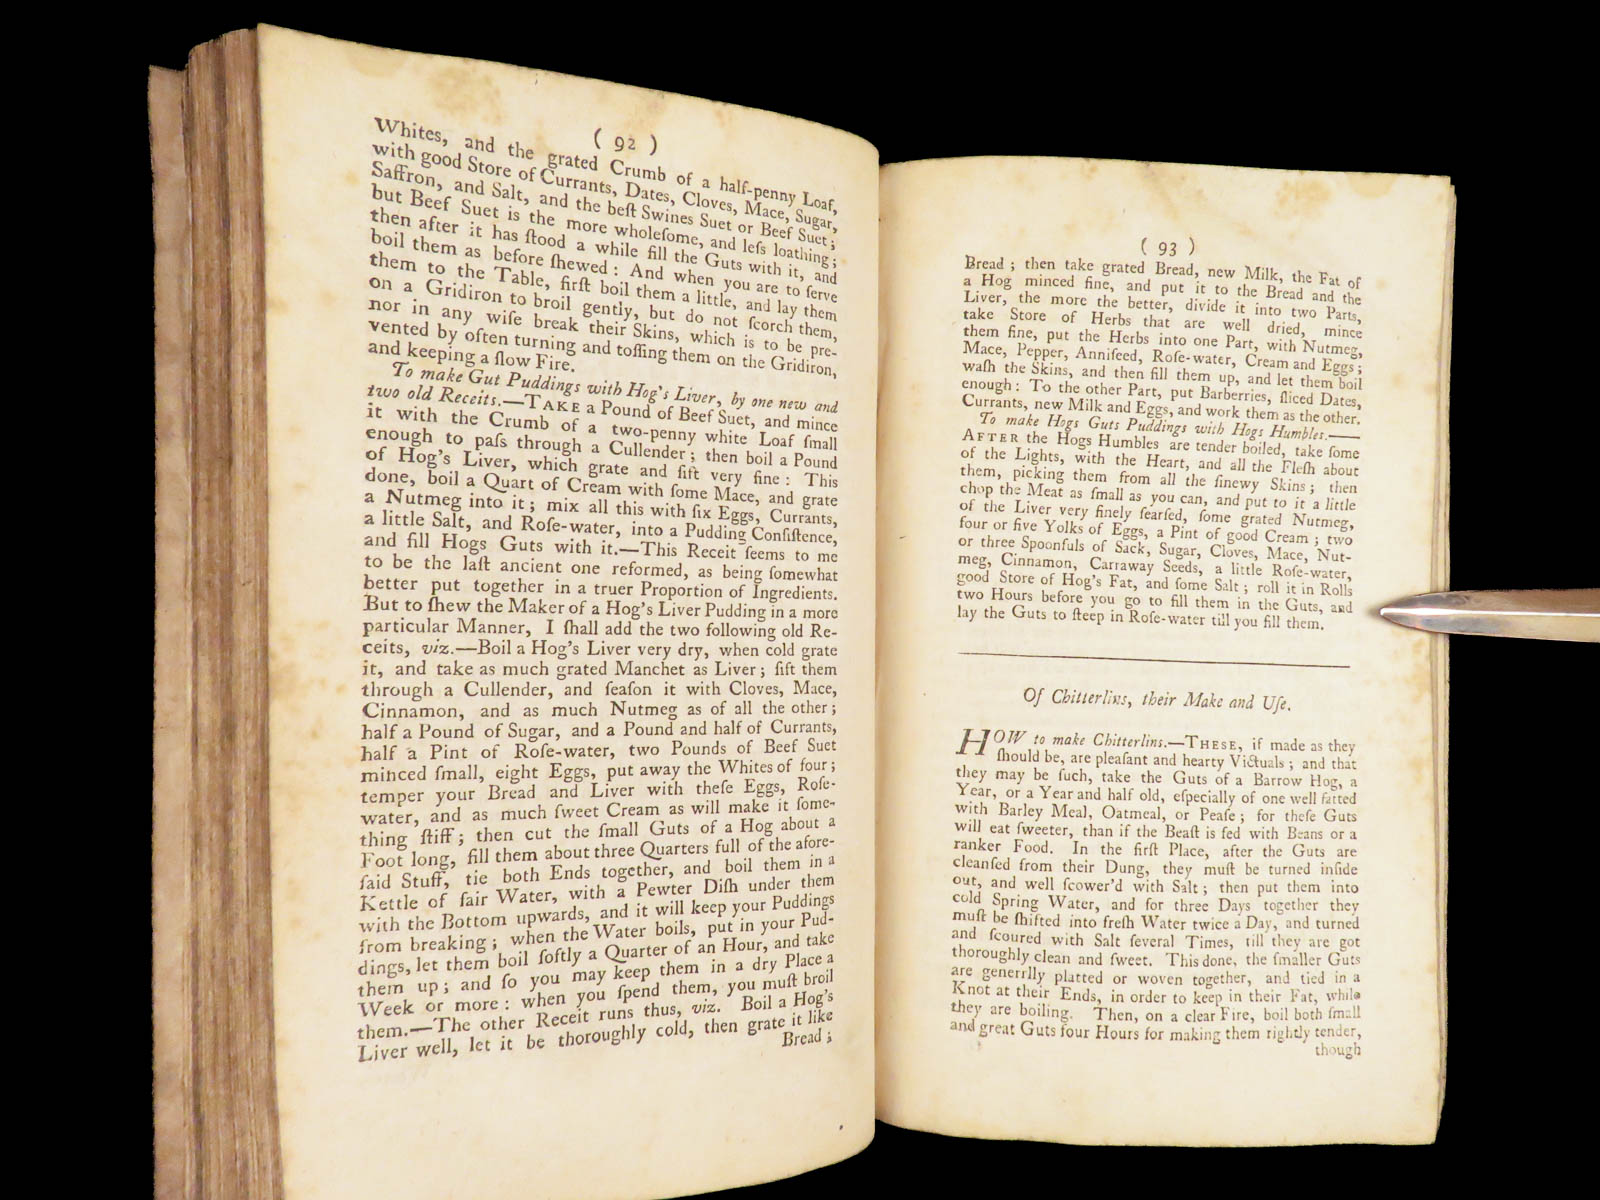 ( 92 )
Whites, and the grated Crumb of a half-penny Loaf,
with good Store of Currants, Dates, Cloves, Mace, Sugar,
Saffron, and Salt, and the beſt Swines Suet or Beef Suet;
but Beef Suet is the more wholeſome, and leſs loathing;
then after it has ſtood a while fill the Guts with it, and
boil them as before ſhewed : And when you are to ſerve
them to the Table, firſt boil them a little, and lay them
on a Gridiron to broil gently, but do not ſcorch them,
nor in any wiſe break their Skins, which is to be pre-
vented by often turning and toſſing them on the Gridiron,
and keeping a ſlow Fire.
To make Gut Puddings with Hog's Liver, by one new and
two old Receits.—TAKE a Pound of Beef Suet, and mince
it with the Crumb of a two-penny white Loaf ſmall
enough to paſs through a Cullender ; then boil a Pound
of Hog's Liver, which grate and ſift very fine : This
done, boil a Quart of Cream with ſome Mace, and grate
a Nutmeg into it ; mix all this with ſix Eggs, Currants,
a little Salt, and Roſe-water, into a Pudding Conſiſtence,
and fill Hogs Guts with it.—This Receit ſeems to me
to be the laſt ancient one reformed, as being ſomewhat
better put together in a truer Proportion of Ingredients.
But to ſhew the Maker of a Hog's Liver Pudding in a more
particular Manner, I ſhall add the two following old Re-
ceits, viz.—Boil a Hog's Liver very dry, when cold grate
it, and take as much grated Manchet as Liver ; ſift them
through a Cullender, and ſeaſon it with Cloves, Mace,
Cinnamon, and as much Nutmeg as of all the other ;
half a Pound of Sugar, and a Pound and half of Currants,
half a Pint of Roſe-water, two Pounds of Beef Suet
minced ſmall, eight Eggs, put away the Whites of four ;
temper your Bread and Liver with theſe Eggs, Roſe-
water, and as much ſweet Cream as will make it ſome-
thing ſtiff ; then cut the ſmall Guts of a Hog about a
Foot long, fill them about three Quarters full of the afore-
ſaid Stuff, tie both Ends together, and boil them in a
Kettle of fair Water, with a Pewter Diſh under them
with the Bottom upwards, and it will keep your Puddings
from breaking ; when the Water boils, put in your Pud-
dings, let them boil ſoftly a Quarter of an Hour, and take
them up ; and ſo you may keep them in a dry Place a
Week or more : when you ſpend them, you muſt broil
them.—The other Receit runs thus, viz. Boil a Hog's
Liver well, let it be thoroughly cold, then grate it like
Bread ;
( 93 )
Bread ; then take grated Bread, new Milk, the Fat of
a Hog minced fine, and put it to the Bread and the
Liver, the more the better, divide it into two Parts,
take Store of Herbs that are well dried, mince
them fine, put the Herbs into one Part, with Nutmeg,
Mace, Pepper, Anniſeed, Roſe-water, Cream and Eggs ;
waſh the Skins, and then fill them up, and let them boil
enough : To the other Part, put Barberries, ſliced Dates,
Currants, new Milk and Eggs, and work them as the other.
To make Hogs Guts Puddings with Hogs Humbles.——
AFTER the Hogs Humbles are tender boiled, take ſome
of the Lights, with the Heart, and all the Fleſh about
them, picking them from all the ſinewy Skins ; then
chop the Meat as ſmall as you can, and put to it a little
of the Liver very finely ſearſed, ſome grated Nutmeg,
four or five Yolks of Eggs, a Pint of good Cream ; two
or three Spoonfuls of Sack, Sugar, Cloves, Mace, Nut-
meg, Cinnamon, Carraway Seeds, a little Roſe-water,
good Store of Hog's Fat, and ſome Salt ; roll it in Rolls
two Hours before you go to fill them in the Guts, and
lay the Guts to ſteep in Roſe-water till you fill them.
Of Chitterlins, their Make and Uſe.
HOW to make Chitterlins.—THESE, if made as they
ſhould be, are pleaſant and hearty Victuals ; and that
they may be ſuch, take the Guts of a Barrow Hog, a
Year, or a Year and half old, eſpecially of one well fatted
with Barley Meal, Oatmeal, or Peaſe ; for theſe Guts
will eat ſweeter, than if the Beaſt is fed with Beans or a
ranker Food. In the firſt Place, after the Guts are
cleanſed from their Dung, they muſt be turned inſide
out, and well ſcower'd with Salt ; then put them into
cold Spring Water, and for three Days together they
muſt be ſhifted into freſh Water twice a Day, and turned
and ſcoured with Salt ſeveral Times, till they are got
thoroughly clean and ſweet. This done, the ſmaller Guts
are generrlly platted or woven together, and tied in a
Knot at their Ends, in order to keep in their Fat, while
they are boiling. Then, on a clear Fire, boil both ſmall
and great Guts four Hours for making them rightly tender,
though